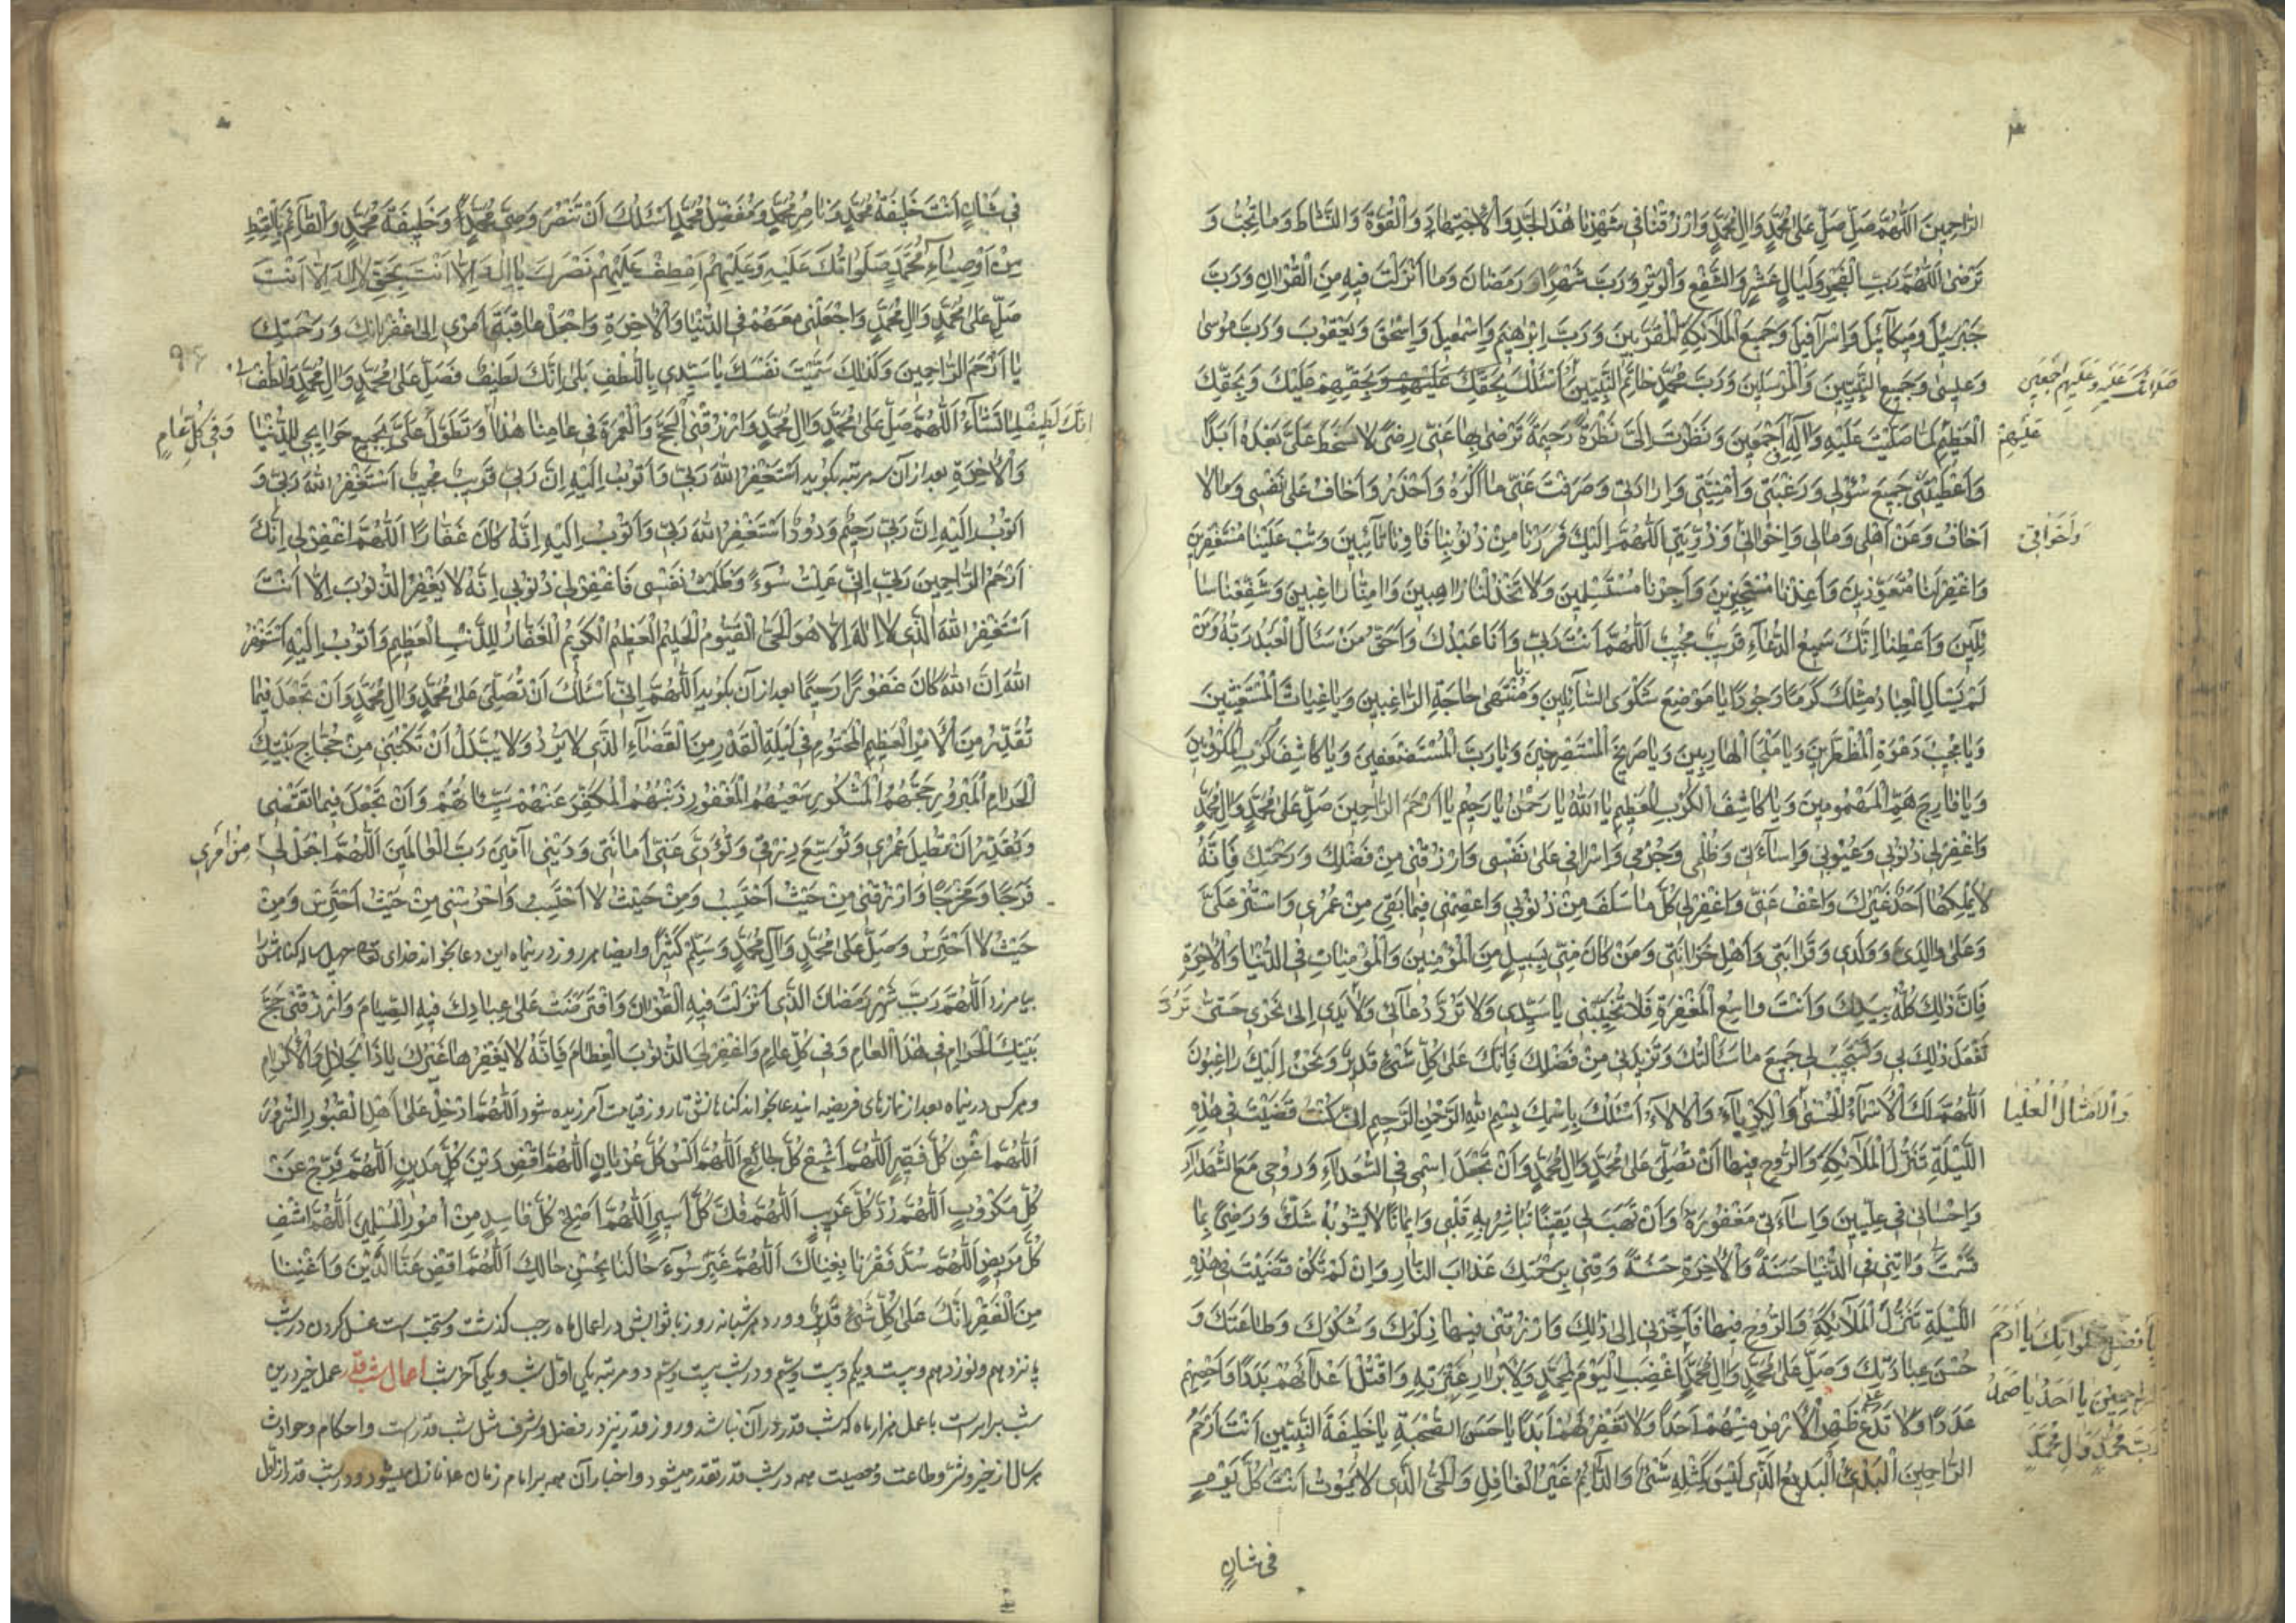 الرّاحِمينَ اَللّهُمَّ صَلِّ صَلِّ عَلى مُحَمَّدٍ وَالِ مُحَمَّدٍ وَارْزُقْنا فى شَهْرِنا هٰذَا الْجَدَّ وَالْاِجْتِهادَ وَالْقُوَّةَ وَالنَّشاطَ وَما تُحِبُّ وَ
تَرْضى اَللّهُمَّ رَبَّ الْفَجْرِ وَلَيالٍ عَشْرٍ وَالشَّفْعِ وَالْوَتْرِ وَرَبَّ شَهْرِ رَمَضانَ وَما اَنْزَلْتَ فيهِ مِنَ الْقُرْانِ وَرَبَّ
جَبْرَئيلَ وَميكآئيلَ وَاِسْرافيلَ وَجَميعِ الْمَلآئِكَةِ الْمُقَرَّبينَ وَرَبَّ اِبْرهيمَ وَاِسْمعيلَ وَاِسْحقَ وَيَعْقُوبَ وَرَبَّ مُوسى
وَعيسى وَجَميعِ النَّبِيّينَ وَالْمُرْسَلينَ وَرَبَّ مُحَمَّدٍ خاتَمِ النَّبِيّينَ اَسْئَلُكَ بِحَقِّكَ عَلَيْهِمْ وَبِحَقِّهِمْ عَلَيْكَ وَبِحَقِّكَ
صَلَواتُكَ عَلَيْهِ وَعَلَيْهِمْ اَجْمَعينَ
الْعَظيمِ لَمّا صَلَّيْتَ عَلَيْهِ وَالِهِ اَجْمَعينَ وَنَظَرْتَ اِلَىَّ نَظْرَةً رَحيمَةً تَرْضى بِها عَنّى رِضًى لا سَخَطَ عَلَىَّ بَعْدَهُ اَبَدًا
عَلَيْهِمْ
وَاَعْطَيْتَنى جَميعَ سُؤْلى وَرَغْبَتى وَاُمْنِيَّتى وَاِرادَتى وَصَرَفْتَ عَنّى ما اَكْرَهُ وَاَحْذَرُ وَاَخافُ عَلى نَفْسى وَمالا
اَخافُ وَعَنْ اَهْلى وَمالى وَاِخْوانى وَذُرِّيَّتى اَللّهُمَّ اِلَيْكَ فَرَرْنا مِنْ ذُنُوبِنا فَاوِنا تآئِبينَ وَتُبْ عَلَيْنا مُسْتَغْفِرينَ
وَاَخَواتى
وَاغْفِرْ لَنا مُتَعَوِّذينَ وَاَعِذْنا مُسْتَجيرينَ وَاَجِرْنا مُسْتَسْلِمينَ وَلا تَخْذُلْنا راهِبينَ وَامِنّا راغِبينَ وَشَفِّعْنا سا
ئِلينَ وَاَعْطِنا اِنَّكَ سَميعُ الدُّعآءِ قَريبٌ مُجيبٌ اَللّهُمَّ اَنْتَ رَبّى وَاَنَا عَبْدُكَ وَاَحَقُّ مَنْ سَاَلَ الْعَبْدُ رَبَّهُ وَ
لَمْ يَسْاَلِ الْعِبادُ مِثْلَكَ كَرَمًا وَجُودًا يا مَوْضِعَ شَكْوَى السّآئِلينَ وَيا مُنْتَهى حاجَةِ الرّاغِبينَ وَيا غِياثَ الْمُسْتَغيثينَ
وَيا مُجيبَ دَعْوَةِ الْمُضْطَرّينَ وَيا مَلْجَاَ الْهارِبينَ وَيا صَريخَ الْمُسْتَصْرِخينَ وَيا رَبَّ الْمُسْتَضْعَفينَ وَيا كاشِفَ كَرْبِ الْمَكْرُوبينَ
وَيا فارِجَ هَمِّ الْمَهْمُومينَ وَيا كاشِفَ الْكَرْبِ الْعَظيمِ يا اَللهُ يا رَحْمنُ يا رَحيمُ يا اَرْحَمَ الرّاحِمينَ صَلِّ عَلى مُحَمَّدٍ وَالِ مُحَمَّدٍ
وَاغْفِرْ لى ذُنُوبى وَعُيُوبى وَاِسآءَتى وَظُلْمى وَجُرْمى وَاِسْرافى عَلى نَفْسى وَارْزُقْنى مِنْ فَضْلِكَ وَرَحْمَتِكَ فَاِنَّهُ
لا يَمْلِكُها اَحَدٌ غَيْرُكَ وَاعْفُ عَنّى وَاغْفِرْ لى كُلَّ ما سَلَفَ مِنْ ذُنُوبى وَاعْصِمْنى فيما بَقِىَ مِنْ عُمْرى وَاسْتُرْ عَلَىَّ
وَعَلى والِدَىَّ وَوَلَدى وَقَرابَتى وَاَهْلِ حُزانَتى وَمَنْ كانَ مِنّى بِسَبيلٍ مِنَ الْمُؤْمِنينَ وَالْمُؤْمِناتِ فى الدُّنْيا وَالْاخِرَةِ
فَاِنَّ ذلِكَ كُلَّهُ بِيَدِكَ وَاَنْتَ واسِعُ الْمَغْفِرَةِ فَلا تُخَيِّبْنى يا سَيِّدى وَلا تَرُدَّ دُعآئى وَلا يَدى اِلى نَحْرى حَتّى
تَفْعَلَ ذلِكَ بى وَتَسْتَجيبَ لى جَميعَ ما سَاَلْتُكَ وَتَزيدَنى مِنْ فَضْلِكَ فَاِنَّكَ عَلى كُلِّ شَىْءٍ قَديرٌ وَنَحْنُ اِلَيْكَ راغِبُونَ
اَللّهُمَّ لَكَ الْاَسْمآءُ الْحُسْنى وَالْكِبْرِيآءُ وَالْالآءُ اَسْئَلُكَ بِاسْمِكَ بِسْمِ اللهِ الرَّحْمنِ الرَّحيمِ اِنْ كُنْتَ قَضَيْتَ فى هذِهِ
وَالْاَمْثالُ الْعُلْيا
اللَّيْلَةِ تَنَزُّلَ الْمَلآئِكَةِ وَالرُّوحِ فيها اَنْ تُصَلِّىَ عَلى مُحَمَّدٍ وَالِ مُحَمَّدٍ وَاَنْ تَجْعَلَ اسْمى فِى السُّعَدآءِ وَرُوحى مَعَ الشُّهَدآءِ
وَاِحْسانى فى عِلِّيّينَ وَاِسآءَتى مَغْفُورَةً وَاَنْ تَهَبَ لى يَقينًا تُباشِرُ بِهِ قَلْبى وَايمانًا لا يَشُوبُهُ شَكٌّ وَرِضًى بِما
قَسَمْتَ لى وَاتِنى فِى الدُّنْيا حَسَنَةً وَالْاخِرَةِ حَسَنَةً وَقِنى بِرَحْمَتِكَ عَذابَ النّارِ وَاِنْ لَمْ تَكُنْ قَضَيْتَ فى هذِهِ
اللَّيْلَةِ تَنَزُّلَ الْمَلآئِكَةِ وَالرُّوحِ فيها فَاَخِّرْنى اِلى ذلِكَ وَارْزُقْنى فيها ذِكْرَكَ وَشُكْرَكَ وَطاعَتَكَ وَ
بِاَفْضَلِ صَلَواتِكَ يا اَرْحَمَ
حُسْنَ عِبادَتِكَ وَصَلِّ عَلى مُحَمَّدٍ وَالِ مُحَمَّدٍ اغْضَبِ الْيَوْمَ لِمُحَمَّدٍ وَلِاَبْرارِ عِتْرَتِهِ وَاقْتُلْ اَعْدآئَهُمْ بَدَدًا وَاَحْصِهِمْ
الرّاحِمينَ يا اَحَدُ يا صَمَدُ
عَدَدًا وَلا تَدَعْ عَلى ظَهْرِ الْاَرْضِ مِنْهُمْ اَحَدًا وَلا تَغْفِرْ لَهُمْ اَبَدًا يا حَسَنَ الصُّحْبَةِ يا خَليفَةَ النَّبِيّينَ اَنْتَ اَرْحَمُ
رَبَّ مُحَمَّدٍ وَالِ مُحَمَّدٍ
الرّاحِمينَ الْبَدىءُ الْبَديعُ الَّذى لَيْسَ كَمِثْلِهِ شَىْءٌ وَالدّآئِمُ غَيْرُ الْغافِلِ وَالْحَىُّ الَّذى لا يَمُوتُ اَنْتَ كُلَّ يَوْمٍ
فى شانٍ
فى شَانٍ اَنْتَ خَليفَةُ مُحَمَّدٍ وَناصِرُ مُحَمَّدٍ وَمُفَضِّلُ مُحَمَّدٍ اَسْئَلُكَ اَنْ تَنْصُرَ وَصِىَّ مُحَمَّدٍ وَخَليفَةَ مُحَمَّدٍ وَالْقآئِمَ بِالْقِسْطِ
مِنْ اَوْصِيآءِ مُحَمَّدٍ صَلَواتُكَ عَلَيْهِ وَعَلَيْهِمْ اِعْطِفْ عَلَيْهِمْ نَصْرَكَ يا لا اِلهَ اِلّا اَنْتَ بِحَقِّ لا اِلهَ اِلّا اَنْتَ
صَلِّ عَلى مُحَمَّدٍ وَالِ مُحَمَّدٍ وَاجْعَلْنى مَعَهُمْ فِى الدُّنْيا وَالْاخِرَةِ وَاجْعَلْ عاقِبَةَ اَمْرى اِلى غُفْرانِكَ وَرَحْمَتِكَ
يا اَرْحَمَ الرّاحِمينَ وَكَذلِكَ سَمَّيْتَ نَفْسَكَ يا سَيِّدى بِاللُّطْفِ بَلى اِنَّكَ لَطيفٌ فَصَلِّ عَلى مُحَمَّدٍ وَالِ مُحَمَّدٍ وَالْطُفْ
اِنَّكَ لَطيفٌ لِما تَشآءُ اَللّهُمَّ صَلِّ عَلى مُحَمَّدٍ وَالِ مُحَمَّدٍ وَارْزُقْنِى الْحَجَّ وَالْعُمْرَةَ فى عامِنا هذا وَتَطَوَّلْ عَلَىَّ بِجَميعِ حَوآئِجى لِلدُّنْيا
وَفى كُلِّ عامٍ
وَالْاخِرَةِ بعد از آن سه مرتبه بگويد اَسْتَغْفِرُ اللهَ رَبّى وَاَتُوبُ اِلَيْهِ اِنَّ رَبّى قَريبٌ مُجيبٌ اَسْتَغْفِرُ اللهَ رَبّى وَ
اَتُوبُ اِلَيْهِ اِنَّ رَبّى رَحيمٌ وَدُودٌ اَسْتَغْفِرُ اللهَ رَبّى وَاَتُوبُ اِلَيْهِ اِنَّهُ كانَ غَفّارًا اَللّهُمَّ اغْفِرْ لى اِنَّكَ
اَرْحَمُ الرّاحِمينَ رَبِّ اِنّى عَمِلْتُ سُوءً وَظَلَمْتُ نَفْسى فَاغْفِرْ لى ذُنُوبى اِنَّهُ لا يَغْفِرُ الذُّنُوبَ اِلّا اَنْتَ
اَسْتَغْفِرُ اللهَ الَّذى لا اِلهَ اِلّا هُوَ الْحَىُّ الْقَيُّومُ الْحَليمُ الْعَظيمُ الْكَريمُ الْغَفّارُ لِلذَّنْبِ الْعَظيمِ وَاَتُوبُ اِلَيْهِ اَسْتَغْفِرُ
اللهَ اِنَّ اللهَ كانَ غَفُورًا رَحيمًا بعد از آن بگويد اَللّهُمَّ اِنّى اَسْئَلُكَ اَنْ تُصَلِّىَ عَلى مُحَمَّدٍ وَالِ مُحَمَّدٍ وَاَنْ تَجْعَلَ فيما
تُقَدِّرُ مِنَ الْاَمْرِ الْعَظيمِ الْمَحْتُومِ فى لَيْلَةِ الْقَدْرِ مِنَ الْقَضآءِ الَّذى لا يُرَدُّ وَلا يُبَدَّلُ اَنْ تَكْتُبَنى مِنْ حُجّاجِ بَيْتِكَ
الْحَرامِ الْمَبْرُورِ حَجُّهُمُ الْمَشْكُورِ سَعْيُهُمُ الْمَغْفُورِ ذَنْبُهُمُ الْمُكَفَّرِ عَنْهُمْ سَيِّئاتُهُمْ وَاَنْ تَجْعَلَ فيما تَقْضى
وَتُقَدِّرُ اَنْ تُطيلَ عُمْرى وَتُوَسِّعَ رِزْقى وَتُؤَدِّىَ عَنّى اَمانَتى وَدَيْنى امينَ رَبَّ الْعالَمينَ اَللّهُمَّ اجْعَلْ لى
مِنْ اَمْرى
فَرَجًا وَمَخْرَجًا وَارْزُقْنى مِنْ حَيْثُ اَحْتَسِبُ وَمِنْ حَيْثُ لا اَحْتَسِبُ وَاحْرُسْنى مِنْ حَيْثُ اَحْتَرِسُ وَمِنْ
حَيْثُ لا اَحْتَرِسُ وَصَلِّ عَلى مُحَمَّدٍ وَآلِ مُحَمَّدٍ وَسَلِّمْ كَثيرًا وايضا هر روز درينماه اين دعا بخواند خداى تعالى چهل ساله گناهش
بيامرزد اَللّهُمَّ رَبَّ شَهْرِ رَمَضانَ الَّذى اَنْزَلْتَ فيهِ الْقُرْانَ وَافْتَرَضْتَ عَلى عِبادِكَ فيهِ الصِّيامَ وَارْزُقْنى حَجَّ
بَيْتِكَ الْحَرامِ فى هذَا الْعامِ وَفى كُلِّ عامٍ وَاغْفِرْ لِىَ الذُّنُوبَ الْعِظامَ فَاِنَّهُ لا يَغْفِرُها غَيْرُكَ يا ذَا الْجَلالِ وَالْاِكْرامِ
وهركس درينماه بعد از نمازهاى فريضه ايندعا بخواند گناهانش تا روز قيامت آمرزيده شود اَللّهُمَّ اَدْخِلْ عَلى اَهْلِ الْقُبُورِ السُّرُورَ
اَللّهُمَّ اَغْنِ كُلَّ فَقيرٍ اَللّهُمَّ اَشْبِعْ كُلَّ جائِعٍ اَللّهُمَّ اكْسُ كُلَّ عُرْيانٍ اَللّهُمَّ اقْضِ دَيْنَ كُلِّ مَدينٍ اَللّهُمَّ فَرِّجْ عَنْ
كُلِّ مَكْرُوبٍ اَللّهُمَّ رُدَّ كُلَّ غَريبٍ اَللّهُمَّ فُكَّ كُلَّ اَسيرٍ اَللّهُمَّ اَصْلِحْ كُلَّ فاسِدٍ مِنْ اُمُورِ الْمُسْلِمينَ اَللّهُمَّ اشْفِ
كُلَّ مَريضٍ اَللّهُمَّ سُدَّ فَقْرَنا بِغِناكَ اَللّهُمَّ غَيِّرْ سُوءَ حالِنا بِحُسْنِ حالِكَ اَللّهُمَّ اقْضِ عَنَّا الدَّيْنَ وَاَغْنِنا
مِنَ الْفَقْرِ اِنَّكَ عَلى كُلِّ شَىْءٍ قَديرٌ وورد هر شبانه روز با ثوابش در اعمال ماه رجب گذشت وسنّت است غسل كردن در شب
پانزدهم ونوزدهم وبيست ويكم وبيست وسيّم ودر شب بيست وسيّم دو مرتبه يكى اوّل شب ويكى آخر شب اعمال شب قدر عمل خير درين
شب برابر است با عمل هزار ماه كه شب قدر در آن نباشد وروز قدر نيز در فضل وشرف مثل شب قدر است واحكام وحوادث
هر سال از خير وشرّ وطاعت ومعصيت همه در شب قدر تقدير ميشود واخبار آن همه بر امام زمان ع نازل ميشود ودر شب قدر از اوّل